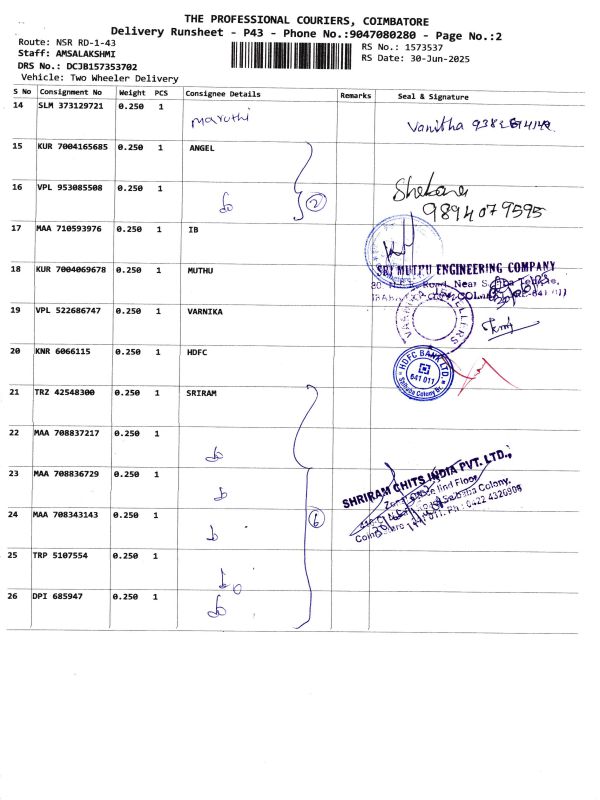 THE PROFESSIONAL COURIERS, COIMBATORE
Delivery Runsheet - P43 - Phone No.:9047080280 - Page No.:2
Route: NSR RD-1-43
Staff: AMSALAKSHMI
RS No.: 1573537
DRS No.: DCJB157353702
RS Date: 30-Jun-2025
Vehicle: Two Wheeler Delivery
S No Consignment No Weight PCS Consignee Details Remarks Seal & Signature
14 SLM 373129721 0.250 1 Maruthi Vanitha
15 KUR 7004165685 0.250 1 ANGEL
16 VPL 953085508 0.250 1 do 2 9894079595
17 MAA 710593976 0.250 1 IB
18 KUR 7004069678 0.250 1 MUTHU SRI MUTHU ENGINEERING COMPANY
19 VPL 522686747 0.250 1 VARNIKA VARNIKA JEWELLERS
20 KNR 6066115 0.250 1 HDFC HDFC BANK LTD. 641 011 Saibaba Colony Br.
21 TRZ 42548300 0.250 1 SRIRAM
22 MAA 708837217 0.250 1 do
23 MAA 708836729 0.250 1 do SHRIRAM CHITS INDIA PVT. LTD.,
IInd Floor,
Saibaba Colony,
Ph : 0422 4320908
24 MAA 708343143 0.250 1 do 6
25 TRP 5107554 0.250 1 do
26 DPI 685947 0.250 1 do